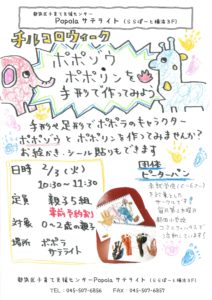 都筑区子育て支援センター
Popola サテライト (ららぽーと横浜3F)
チルコロウィーク
ポポゾウ
ポポリンを
手形で作ってみよう
手形や足形でポポラのキャラクター
ポポゾウとポポリンを作ってみませんか?
お絵かき・シール貼りもできます
日時 2/3(火)
10:30〜11:30
定員 親子5組
事前予約制
対象 0〜2歳の親子
場所 ポポラ
サテライト
団体
ピーターパン
都筑区子育て支援センターPopola サテライト (ららぽーと横浜3F)
TEL:045-507-6856 FAX 045-507-6857